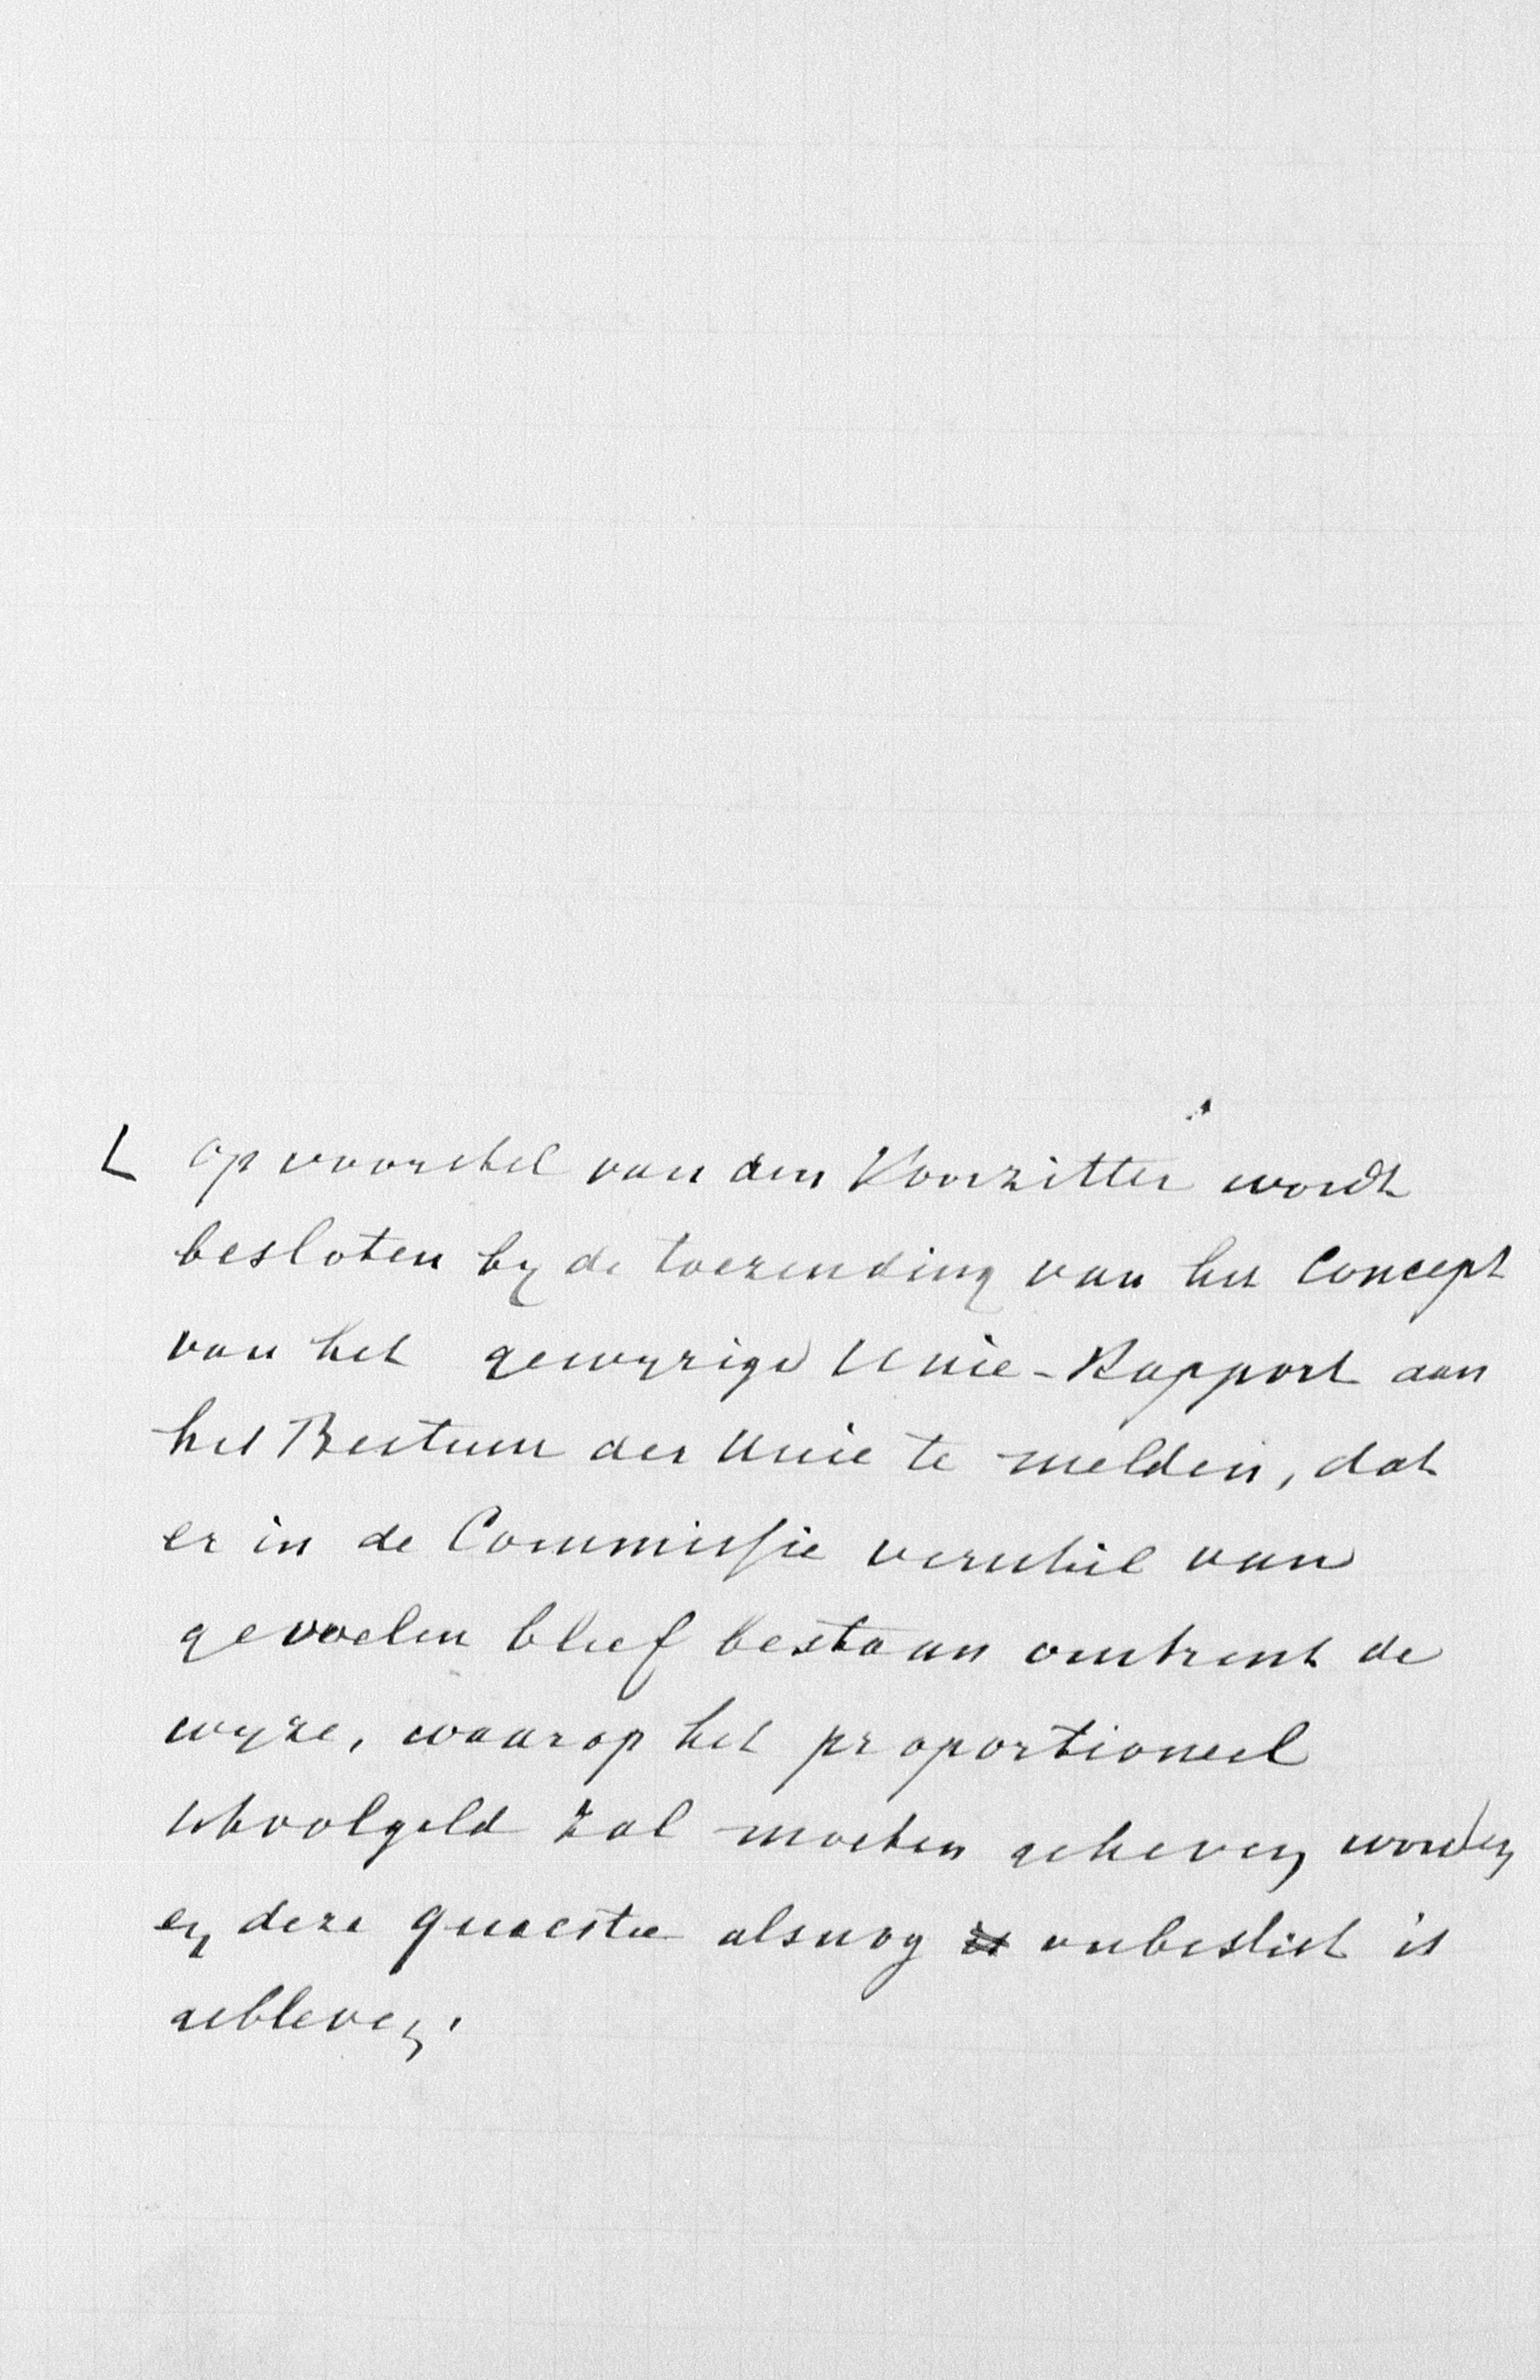 L op voorstel van den Voorzitter wordt
besloten by de toezending van het Concept
van het gewyzigd Unie-Rapport aan
het Bestuur der Unie te melden, dat
er in de Commissie verschil van
gevoelen bleef bestaan omtrent de
wyze, waarop het proportioneel
schoolgeld zal moeten geheven worden
en deze quaestie alsnog is onbeslist is
gebleven.